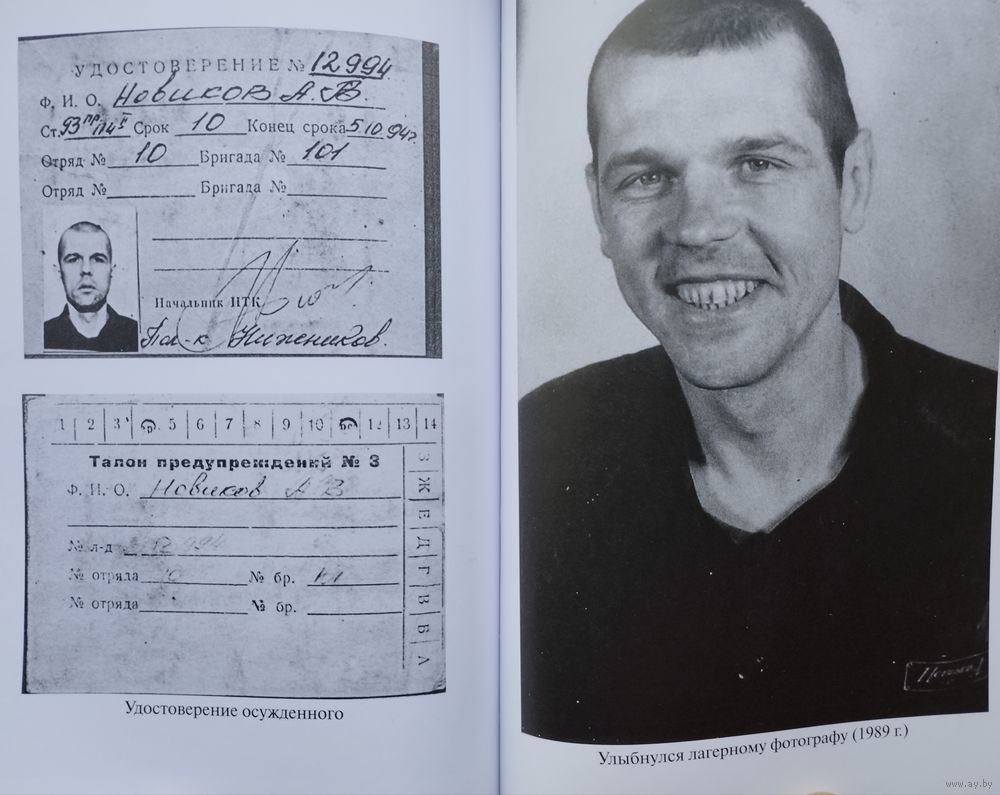 УДОСТОВЕРЕНИЕ № 12994
Ф. И. О. Новиков А. В.
Ст. 93 пр 114 I Срок 10 Конец срока 5.10.94г.
Отряд № 10 Бригада № 101
Отряд № Бригада №
Начальник ИТК
Пол-к Нижеников.
1 2 3 5 6 7 8 9 10 12 13 14
Талон предупреждений № 3
Ф. И. О. Новиков А В
№ л-д 12 994
№ отряда 10 № бр.
№ отряда № бр.
З Ж Е Д Г В Б А
Удостоверение осужденного
Улыбнулся лагерному фотографу (1989 г.)
www.ay.by